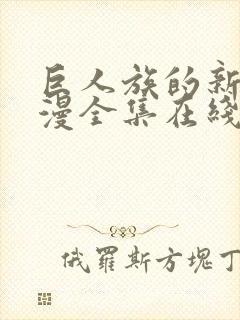 巨人族的新
漫全集在线
俄羅斯方塊丁